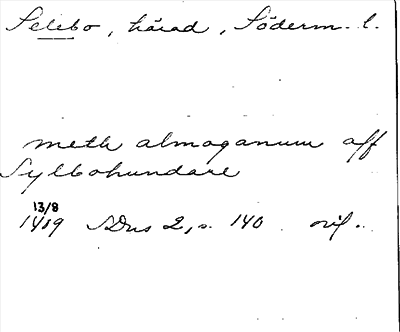 Selebo, härad, Söderm. l.
meth almoganum aff
Sylbohundare
13/8
1419 SDns 2, s. 140 orig.